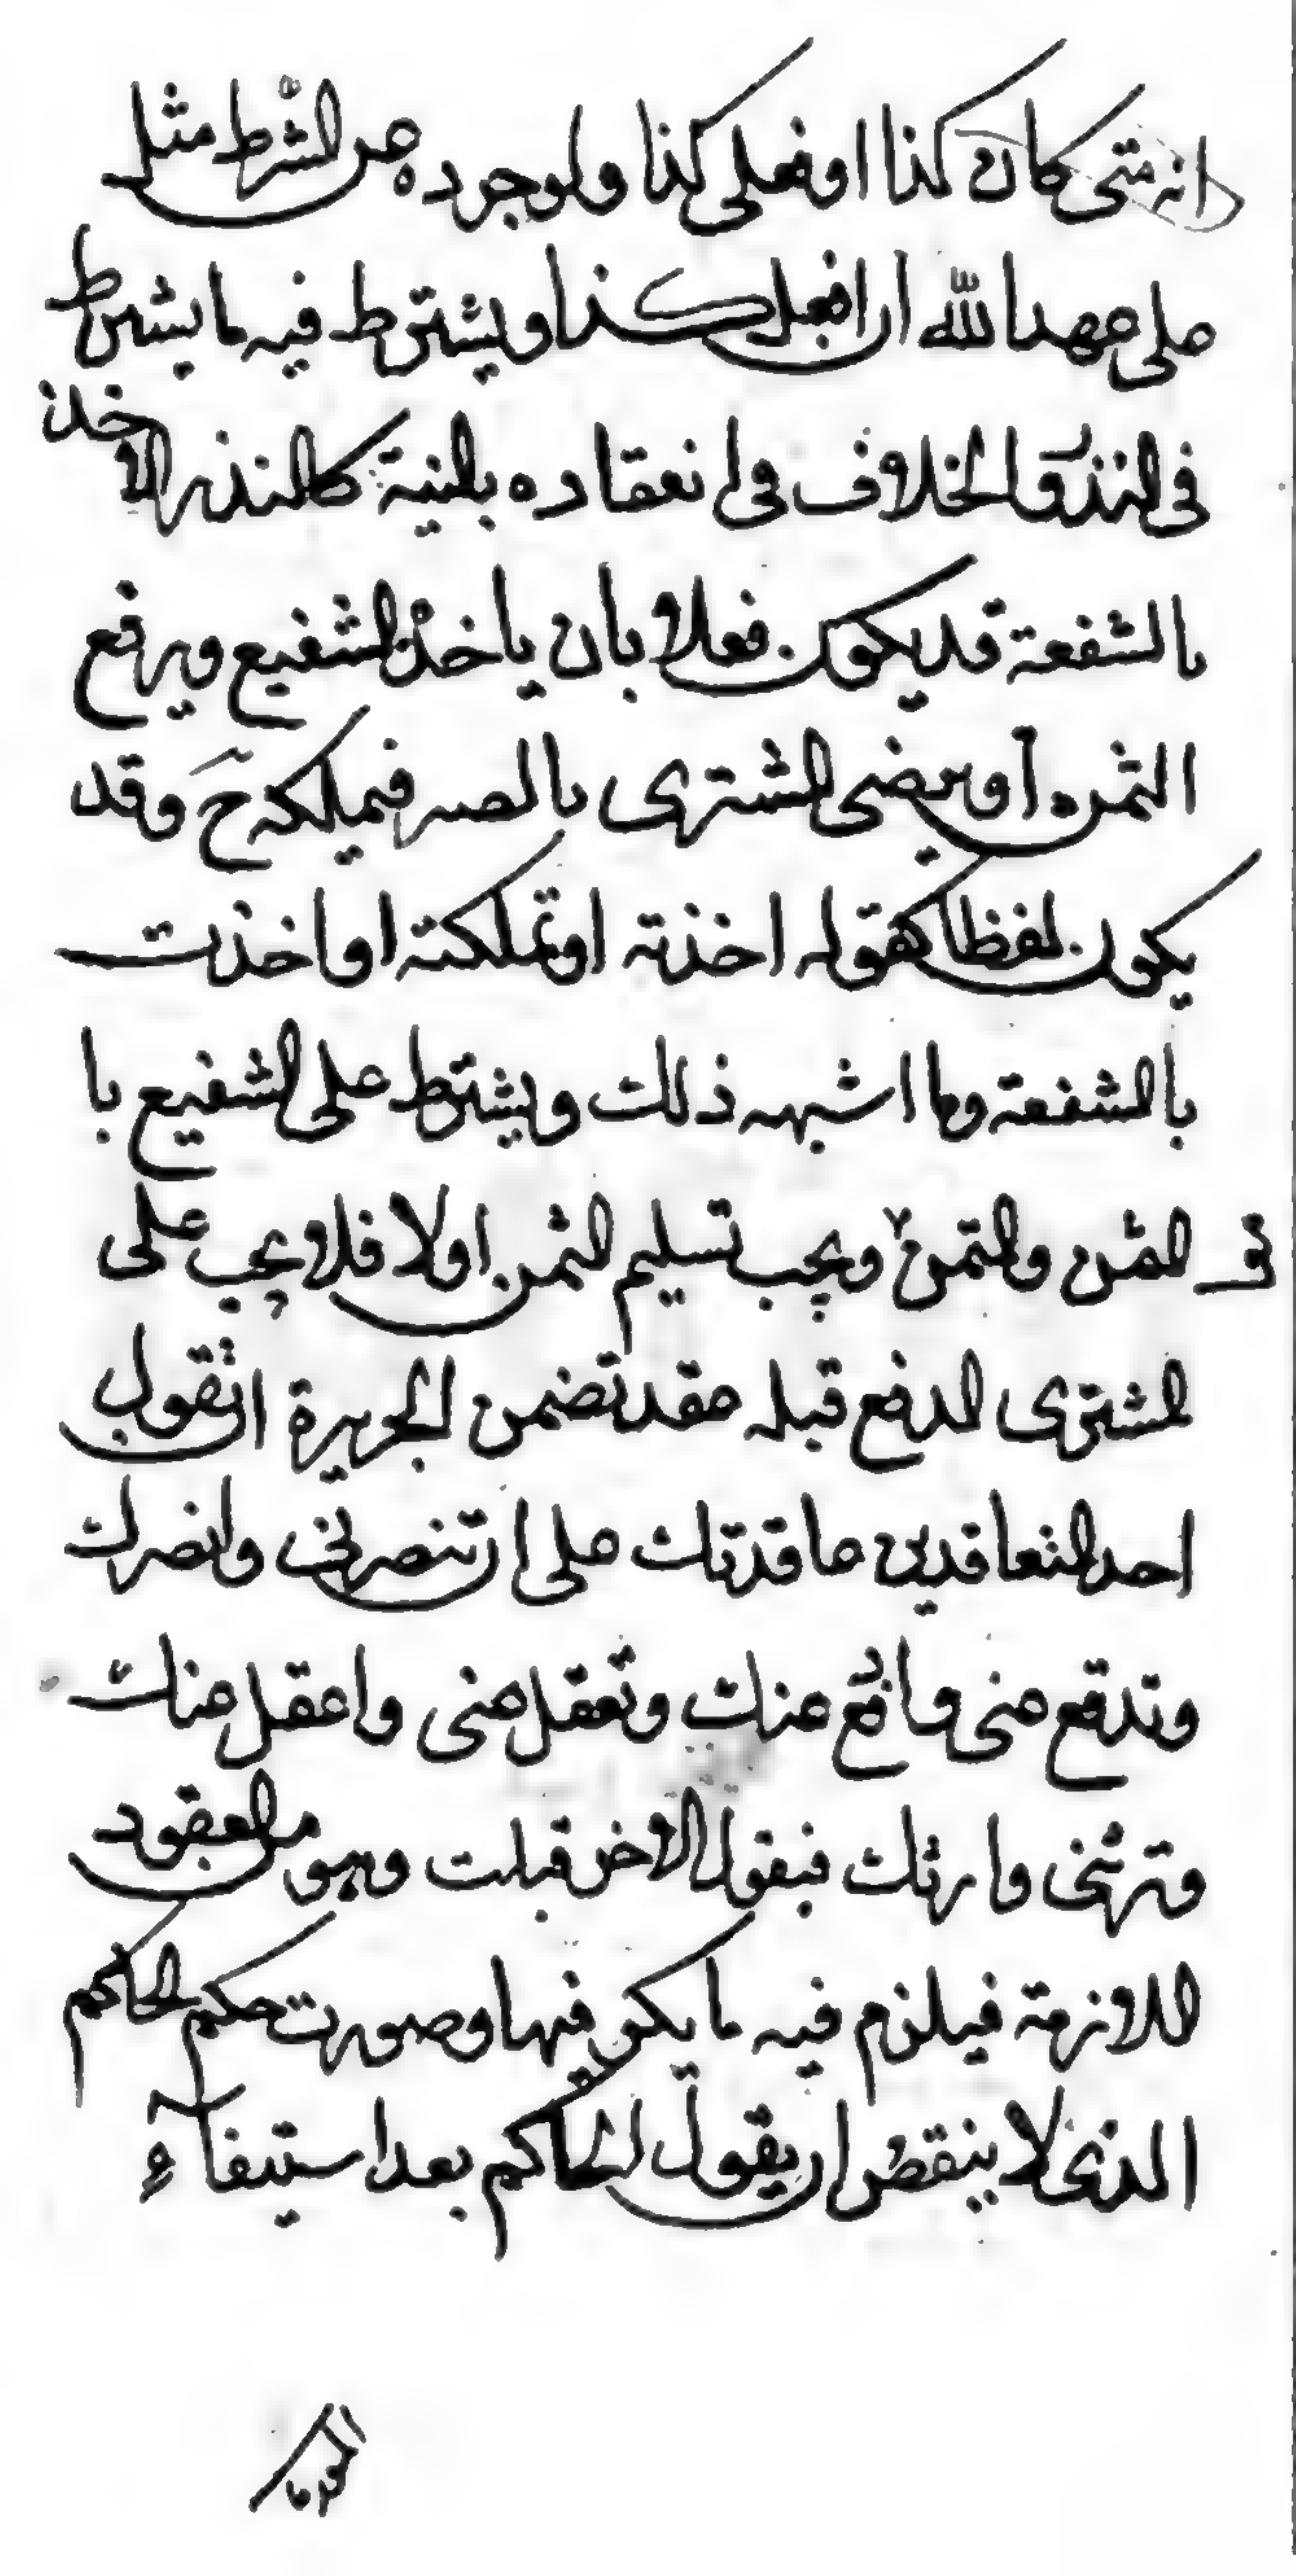 انه متى كان كذا او فعلى كذا ولوجرده عن الشرط مثل
على عهد الله ان افعل كذا ويشترط فيه ما يشترط
فى النذر والخلاف فى انعقاده بالنية كالنذر الاخذ
بالشفعة قد يكون فعلا بان ياخذ الشفيع ويرفع
الثمن او يرضى المشترى بالصبر فيملكه ح وقد
يكون لفظا كقوله اخذته او تملكته او اخذت
بالشفعة وما اشبهه ذلك ويشترط على الشفيع با
لثمن والثمن ويجب تسليم الثمن اولا فلا يجب على
المشترى الدفع قبله عقد تضمن الجريرة ان يقول
احد المتعاقدين عاقدتك على ان تنصرنى وانصرك
وتدفع عنى وادفع عنك وتعقل عنى واعقل عنك
وترثنى وارثك فيقول الاخر قبلت وهو من العقود
اللازمة فيلزم فيه ما يكن فيها وصورت حكم الحاكم
الذى لا ينقض ان يقول الحاكم بعد استيفآء